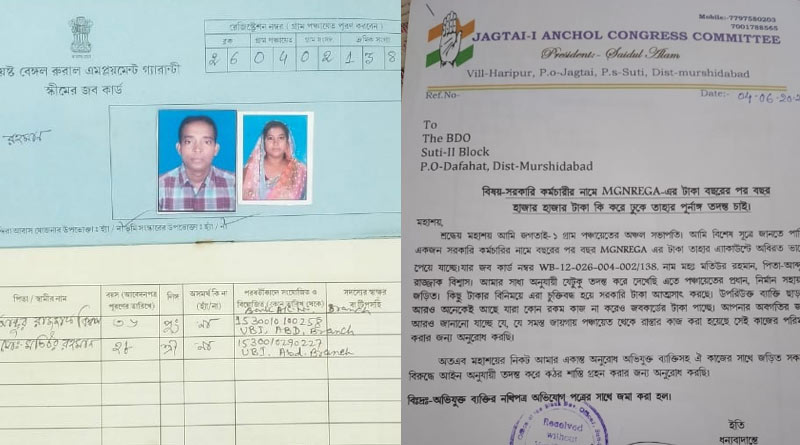 রেজিস্ট্রেশন নম্বর ( গ্রাম পঞ্চায়েত পূরণ করবেন )
ব্লক গ্রাম পঞ্চায়েত গ্রাম সংসদ
২ 6 0 4 0 2 1 3 8
বেঙ্গল রুরাল এমপ্লয়মেন্ট গ্যারান্টী
স্কীমের জব কার্ড
রহমান
পিতা / স্বামীর নাম
বয়স (আবেদনপত্র পূরণের তারিখে)
লিঙ্গ
অসমর্থ কি না (হ্যাঁ/না)
সদস্যের স্বাক্ষর বা টিপসহি
153001010025৪
UBI, ABD, Branch
1530010290227
UBI, Abd. Branch
Mobile:-7797580203
7001788565
JAGTAI-I ANCHOL CONGRESS COMMITTEE
President:- Saidul Alam
Vill-Haripur, P.o-Jagtai, P.s-Suti, Dist-murshidabad
Ref.No-
Date:- 04-06-202
To
The BDO
Suti-II Block
P.O-Dafahat, Dist-Murshidabad
বিষয়-সরকারি কর্মচারীর নামে MGNREGA-এর টাকা বছরের পর বছর
হাজার হাজার টাকা কি করে ঢুকে তাহার পূর্নাঙ্গ তদন্ত চাই।
মহাশয়,
শ্রদ্ধেয় মহাশয় আমি জগতাই-১ গ্রাম পঞ্চায়েতের অঞ্চল সভাপতি। আমি বিশেষ সূত্রে জানতে পারি
একজন সরকারি কর্মচারির নামে বছরের পর বছর MGNREGA এর টাকা তাহার এ্যাকাউন্টে অবিরত ভাবে
পেয়ে যাচ্ছে।যার জব কার্ড নম্বর WB-12-026-004-002/138. নাম মহঃ মতিউর রহমান, পিতা-আব্দুর
রাজ্জাক বিশ্বাস। আমার সাধ্য অনুযায়ী যেটুকু তদন্ত করে দেখেছি এতে পঞ্চায়েতের প্রধান, নির্মান সহায়ক
জড়িত। কিছু টাকার বিনিময়ে এরা চুক্তিবদ্ধ হয়ে সরকারি টাকা আত্মসাৎ করছে। উপরিউক্ত ব্যক্তি ছাড়াও
আরও অনেকেই আছে যারা কোন রকম কাজ না করেও জবকার্ডের টাকা পাচ্ছে। আপনার অবগতির জন্য
আরও জানানো যাচ্ছে যে, যে সমস্ত জায়গায় পঞ্চায়েত থেকে রাস্তার কাজ করা হয়েছে সেই কাজের
করার জন্য অনুরোধ করছি।
অতএব মহাশয়ের নিকট আমার একান্ত অনুরোধ অভিযুক্ত ব্যক্তিসহ ঐ কাজের সাথে জড়িত
বিরুদ্ধে আইন অনুযায়ী তদন্ত করে কঠর শাস্তি গ্রহন করার জন্য অনুরোধ করছি।
বিঃদ্রঃ-অভিযুক্ত ব্যক্তির নথিপত্র অভিযোগ পত্রের সাথে জমা করা হল।
ইতি
ধন্যবাদান্তে
Received
without